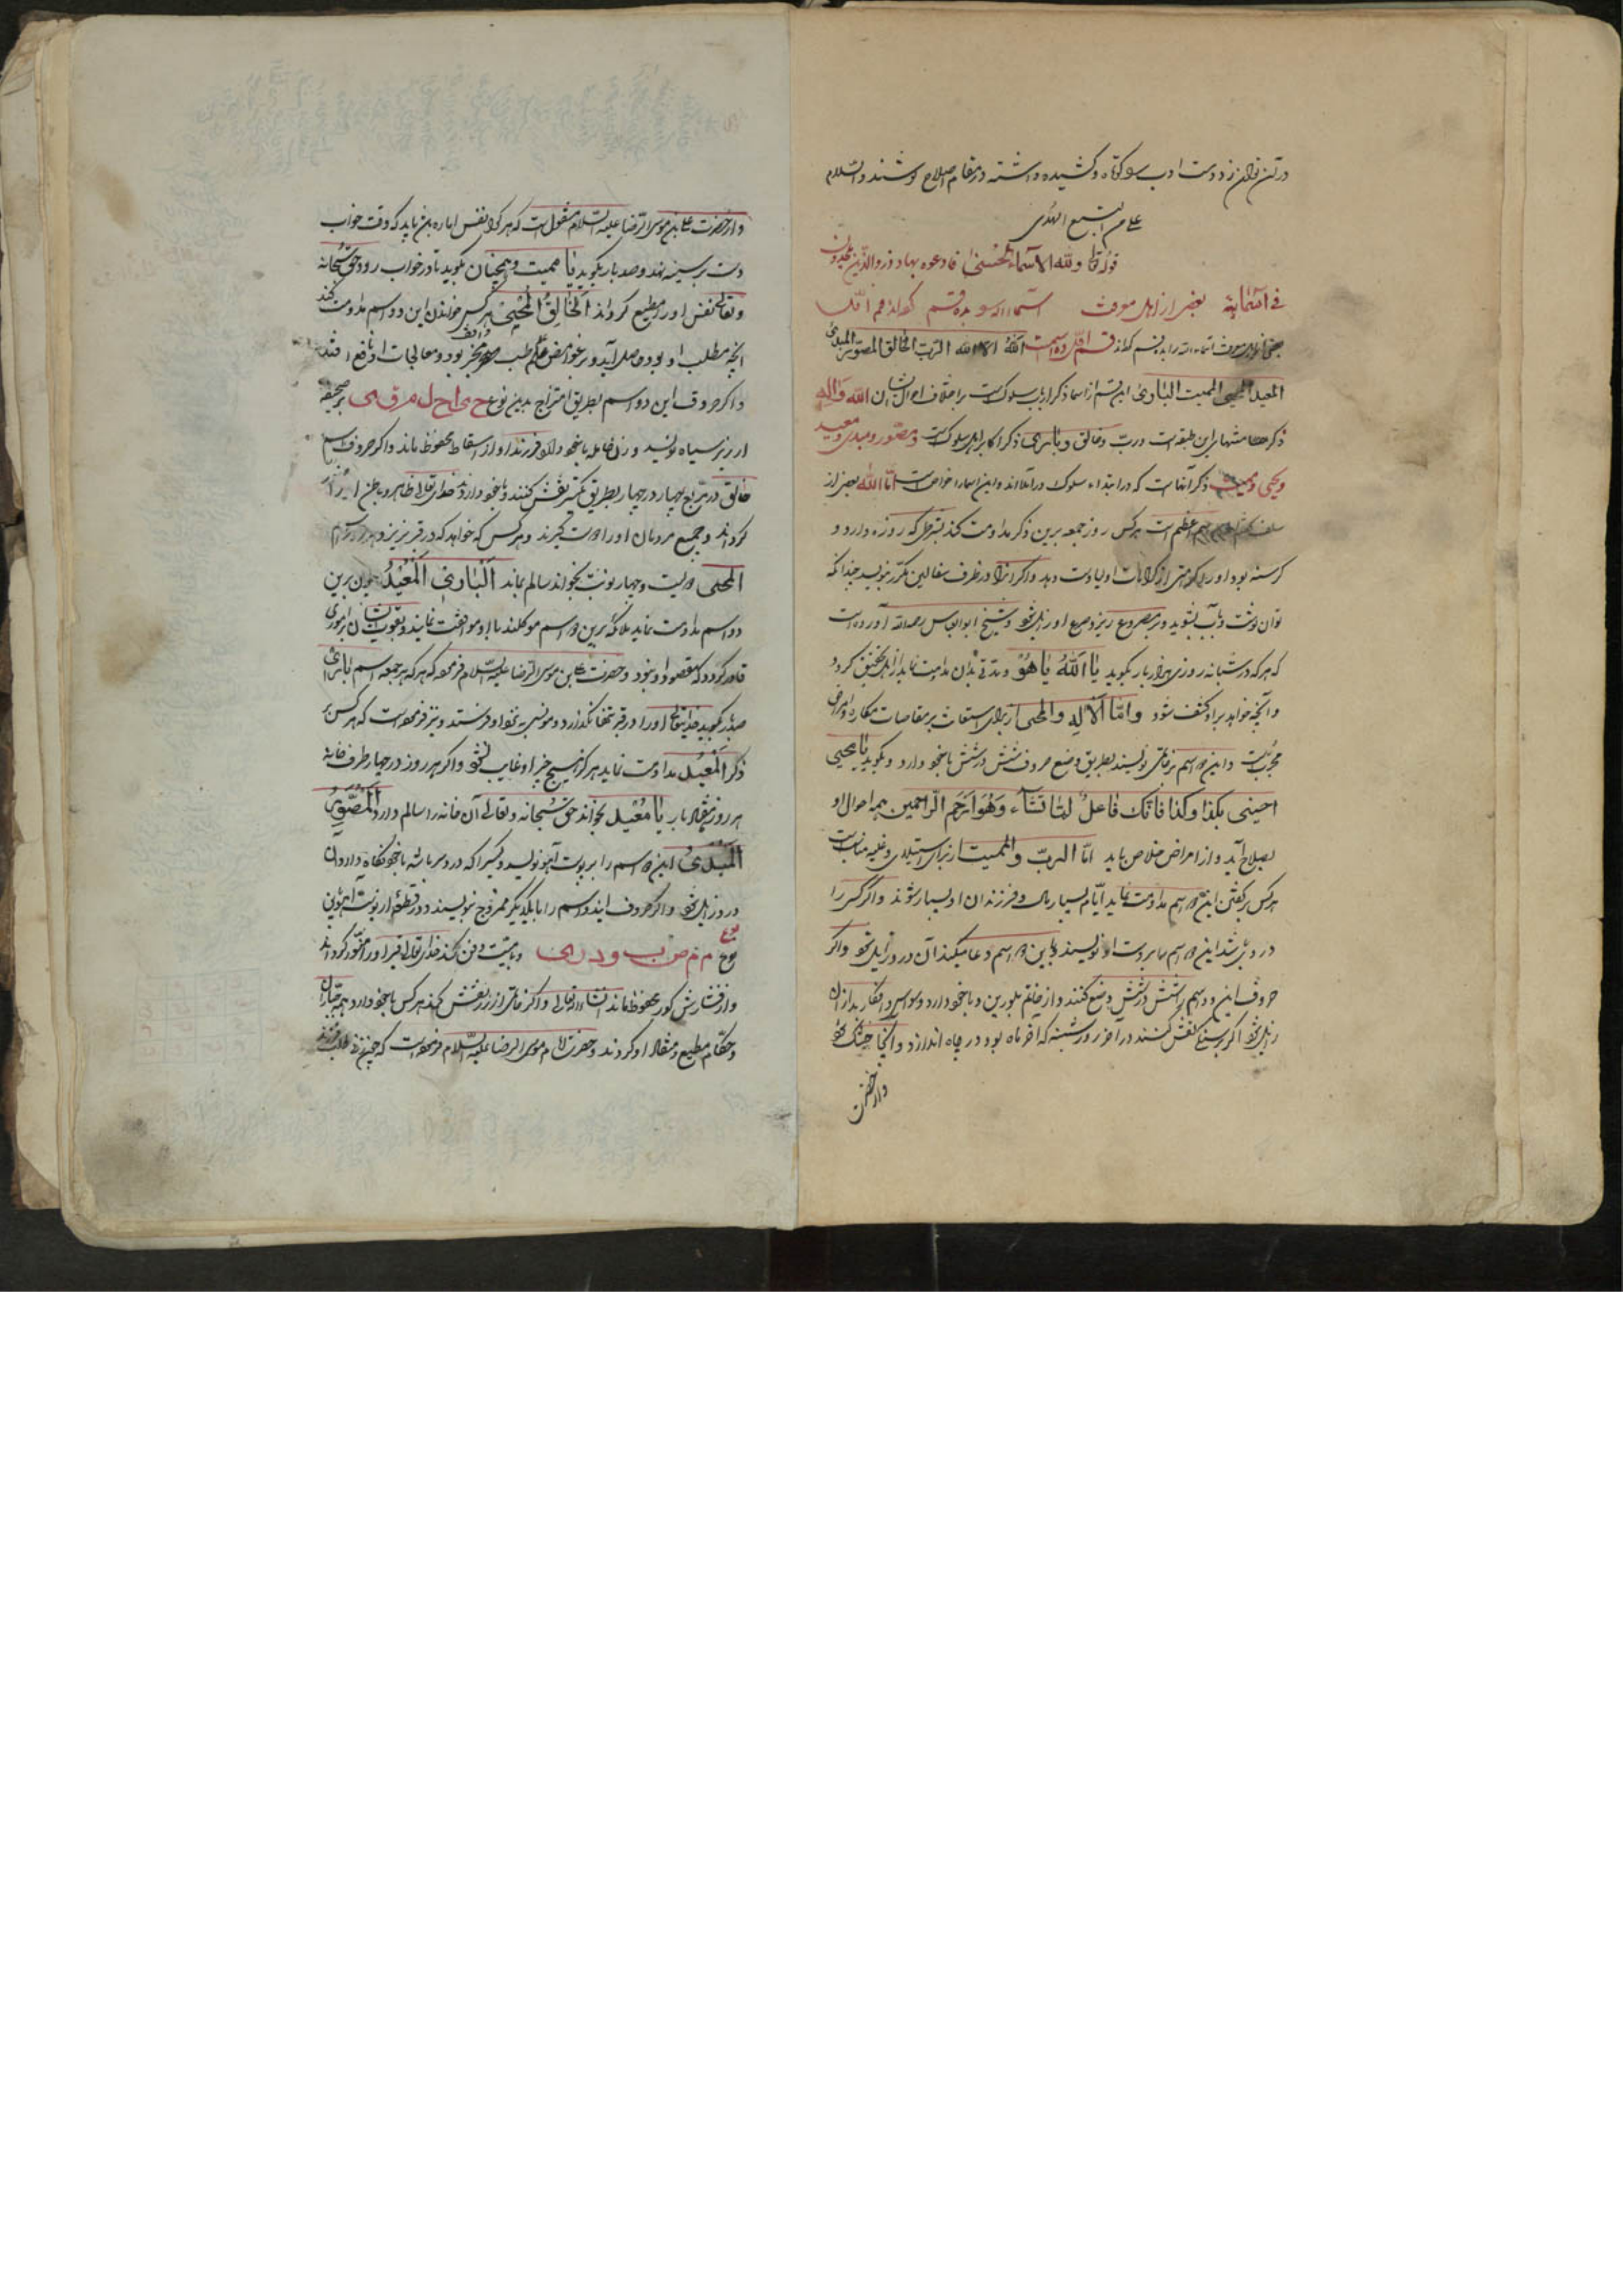 در تن توان زد دست ادب کوتاه و کشیده داشته در مقام اصلاح کوشند والسلام
علی من اتبع الهدی
قوله تعالی ولله الاسماء الحسنی فادعوه بها وذروا الذین یلحدون
فی اسمائه بعضی از اهل معرفت اسماء الله را بده قسم کرده‌اند قسم اول
اسماء الله را بده قسم کرده‌اند قسم اول ده اسمست الله الاله الرب الخالق المصور المبدئ
المعید المحیی الممیت الباری این قسم از اسما ذکر ارباب سلوکست بر اختلاف احوال ایشان الله واله
ذکر منتهیان این طبقه است ورب وخالق وباری ذکر اکابر اهل سلوکست ومصور ومبدی ومعید
ومحیی وممیت ذکر آنهاست که در ابتداء سلوک درآمده‌اند و این اسما را خواص است اما الله بعضی از
اسم اعظم است هرکس روز جمعه برین ذکر مداومت کند بشرطی که روزه دارد و
گرسنه بود او را کرامات اولیا دست دهد و اگر آنرا در ظرف سفالین مکرر بنویسد چندانکه
توان نوشت و بآب بشوید و بر مصروع ریزد صرع او زایل شود و شیخ ابوالعباس رحمه الله آورده است
که هرکه در شبانه روزی هزار بار بگوید یا الله یا هو و مدتی بدان مداومت نماید از اهل تحقیق گردد
و آنچه خواهد بر او کشف شود واما الاله والمحیی از برای استعانت بر مقاصات مکاره و امراض
مجربست و این دو اسم بر خاتمی نویسند بطریق وضع حروف شش در شش با خود دارد و بگوید یا محیی
احینی بکذا وکذا فانک فاعل لما تشاء وهو ارحم الراحمین همه احوال او
بصلاح آید و از امراض خلاص یابد اما الرب والممیت از برای استیلای و غلبه مناسبست
هرکس بر گفتن این دو اسم مداومت نماید ایام بسیار مال و فرزندان او بسیار شوند و اگر کسی را
دردی باشد این دو اسم را بر پوست آهو نویسند و باین دو اسم دعا میکند آن درد زایل شود و اگر
حروف این دو اسم را شش در شش وضع کنند و از خاتم بلورین و با خود دارد وسواس و افکار بد از آن
زایل شود اگر بر سنگ نقش کنند در آخر روز شنبه که آخر ماه بود در چاه اندازد و آنجا جنگ شود
و از حضرت
و از حضرت علی بن موسی الرضا علیه السلام منقول است که هرکرا نفس اماره بدان باید که وقت خواب
دست بر سینه نهد و صد بار بگوید یا ممیت و همچنان بگوید تا در خواب رود حق سبحانه
و تعالی نفس او را مطیع گرداند الخالق المحیی هرکس خواندن این دو اسم مداومت کند
آنچه مطلب او بود حاصل آید و بر غوامض علم طب واقف و متبحر بود و معالجات او نافع افتد
و اگر حروف این دو اسم بطریق امتزاج بدین نوع ح م ا ح ل م ر ق ی بر صحیفه
ارزیز سیاه نویسد و زن حامله با خود دارد فرزند او از اسقاط محفوظ ماند و اگر حروف اسم
خالق در مربع چهار در چهار بطریق تکسیر نقش کنند و با خود دارد خدای تعالی ظاهر و باطن او را
گرداند و جمیع مردمان او را دوست گیرند و هرکس که خواهد که در قبر نریزد
المحیی دویست و چهار نوبت بخواند سالم بماند الباری المعید چون برین
دو اسم مداومت نماید ملائکه برین دو اسم موکلند با او موافقت نمایند و بتقویت ایشان بر اموری
قادر گردد که مقصود او بود و حضرت علی بن موسی الرضا علیه السلام فرموده که هرکه هر جمعه اسم الباری
صد بار بگوید خدایتعالی او را در قبر تنها نگذارد و مونسی بنزد او فرستد و نیز فرموده است که هرکس بر
ذکر المعید مداومت نماید هرگز هیچ چیز از او غایب نشود و اگر هر روز در چهار طرف خانه
هر روز هفتاد بار یا معید بخواند حق سبحانه و تعالی آن خانه را سالم دارد المصور
المبدئ این دو اسم را بر پوست آهو نویسد و کسی را که درد سر باشد با خود نگاه دارد آن
درد زایل شود و اگر حروف این دو اسم را با یکدیگر ممزوج بنویسند در قطعه از پوست آهو باین
نوع م م ص ب و د ر ی و با میت دفن کنند خدای تعالی قبر او را منور گرداند
و از فشارش گور محفوظ ماند انشاءالله تعالی و اگر خاتمی از زر نقش کند هرکس با خود دارد همه جباران
و حکام مطیع و منقاد او گردند و حضرت امام موسی الرضا علیه السلام فرموده است که چون زن طلب فرزند